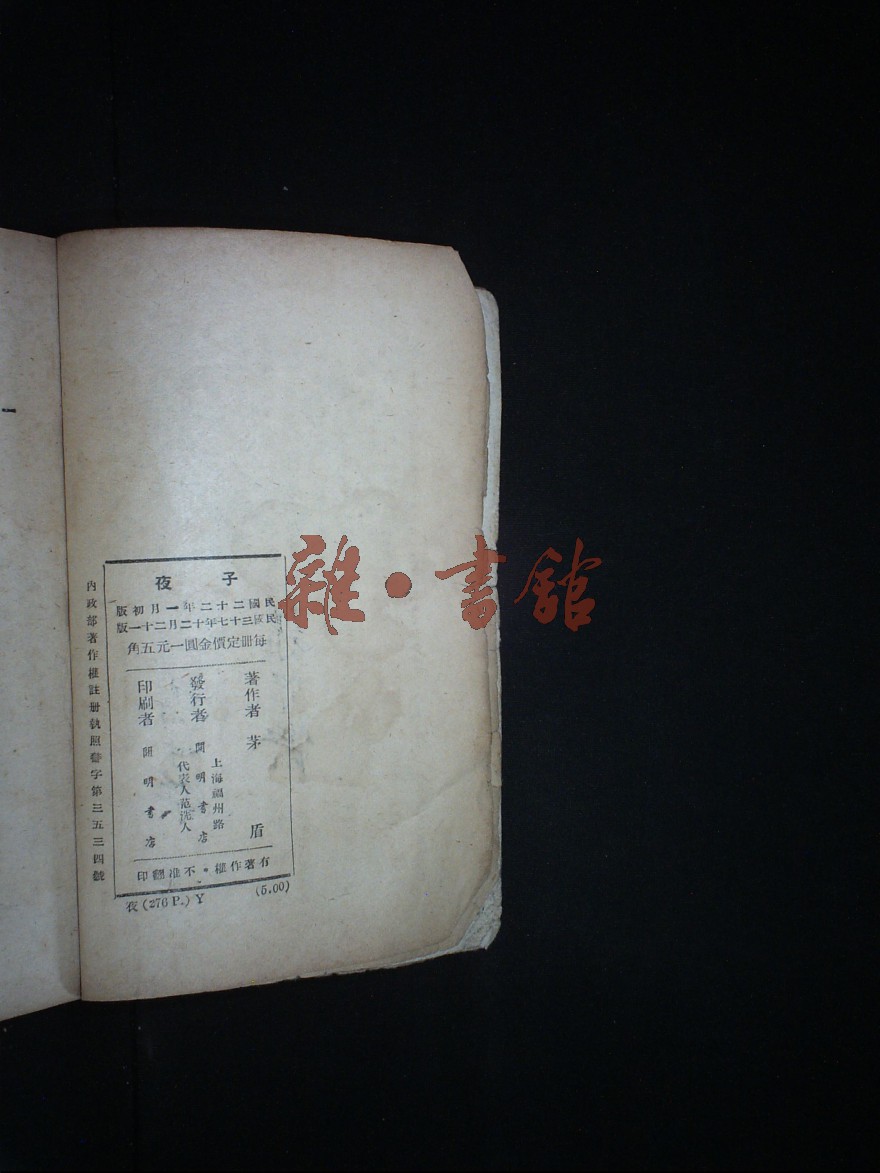 子夜
民國二十二年一月初版
民國三十七年十二月二十一版
每冊定價金圓一元五角
著作者 茅盾
發行者 上海福州路
開明書店
代表人范洗人
印刷者 開明書店
有著作權・不准翻印
(5.00)
夜(276P.)Y
內政部著作權註册執照警字第三五三四號
雜・書館